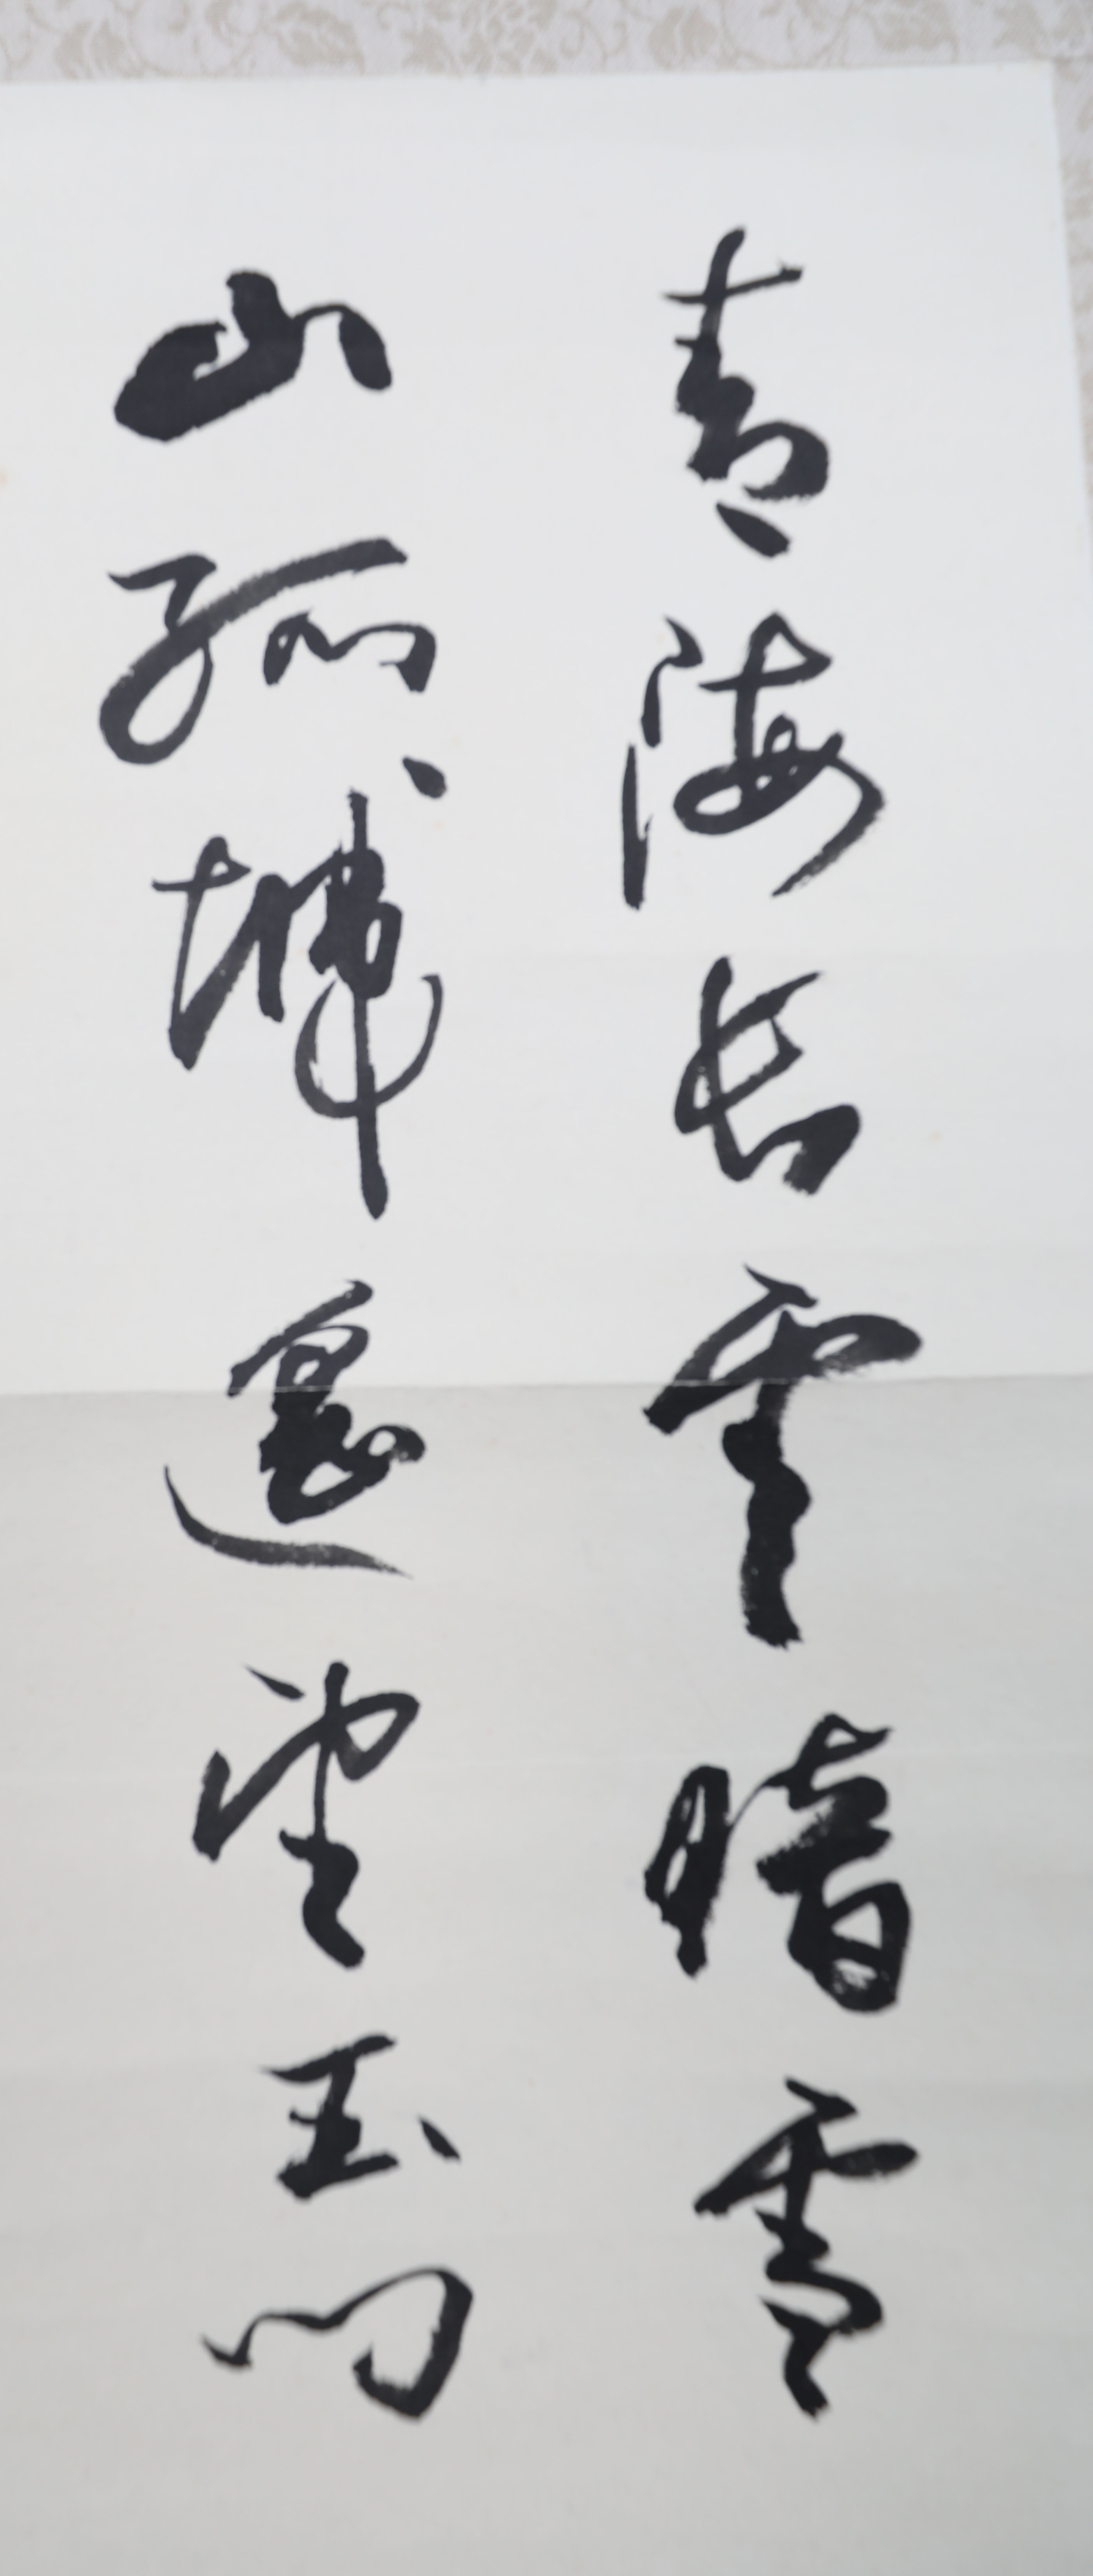 青海長雲暗雪
山孤城遙望玉門